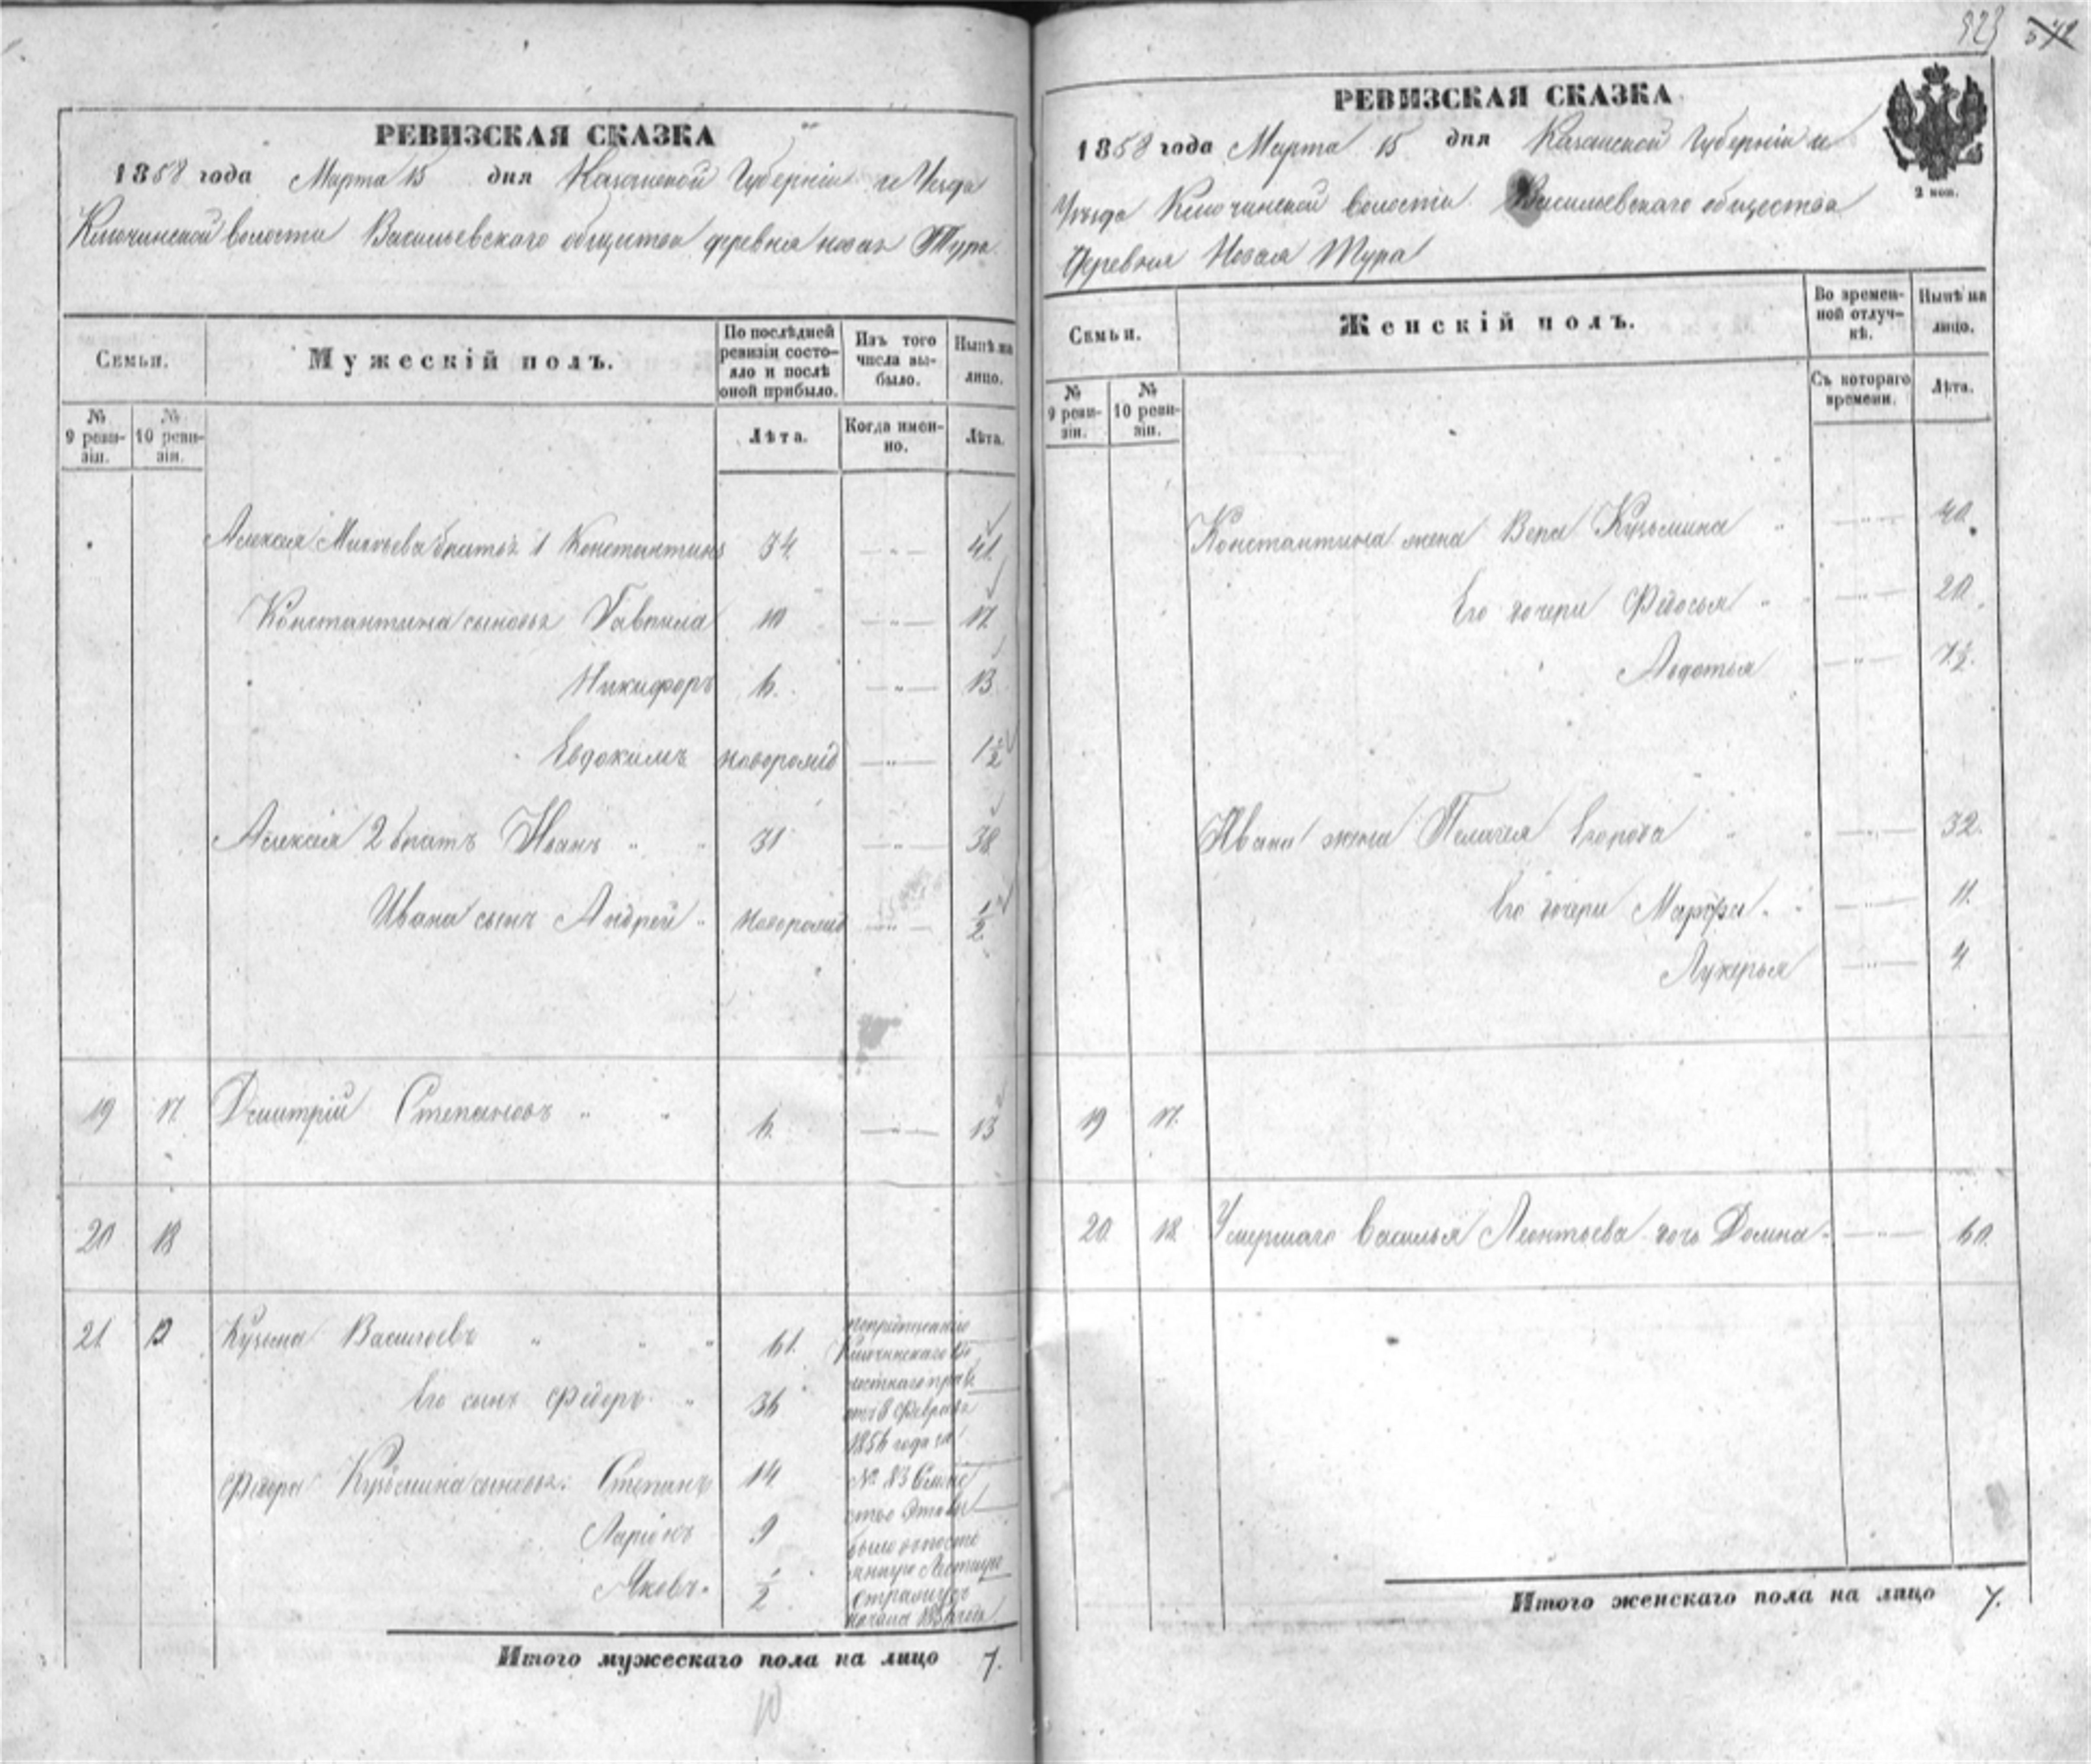 923 542
РЕВИЗСКАЯ СКАЗКА
1858 года Марта 15 дня Казанской Губерніи и Уезда
Ключинской волости Васильевскаго общества деревня новая Тура
Семьи.
Мужескій полъ.
По послѣдней ревизіи состояло и послѣ оной прибыло.
Изъ того числа выбыло.
Нынѣ на лицо.
№ 9 ревизіи.
№ 10 ревизіи.
Лѣта.
Когда именно.
Лѣта.
Алексея братья 1 Константинъ 34 41
Константина сыновья Гаврила 10 17
Никифоръ 6. 13
Евдокимъ новорожд 1½
Алексея 2 братъ Иванъ 31 38
Ивана сынъ Андрей новорожд ½
19 17. Дмитрій Степановъ 6. 13
20 18
21. 19 Кузьма Васильевъ 61.
Его сынъ Федоръ 36
Федора Кузьмина сыновья: Степанъ 14
Ларіонъ 9
Яковъ. ½
1856 года за
№ 83
Итого мужескаго пола на лицо 7.
10
РЕВИЗСКАЯ СКАЗКА
1858 года Марта 15 дня Казанской Губерніи и
Уезда Ключинской волости Васильевскаго общества
Деревня Новая Тура
2 коп.
Семьи.
Женскій полъ.
Во временной отлучкѣ.
Нынѣ на лицо.
№ 9 ревизіи.
№ 10 ревизіи.
Съ котораго времени.
Лѣта.
Константина жена Вера Кузьмина 40.
Его дочери Федосья 20.
Авдотья 7½.
Ивана жена Пелагея Егорова 32.
Его дочери Марфа 11.
Лукерья 4
19 17.
20. 18. Умершаго Василья Леонтьева дочь Домна 60.
Итого женскаго пола на лицо 7.